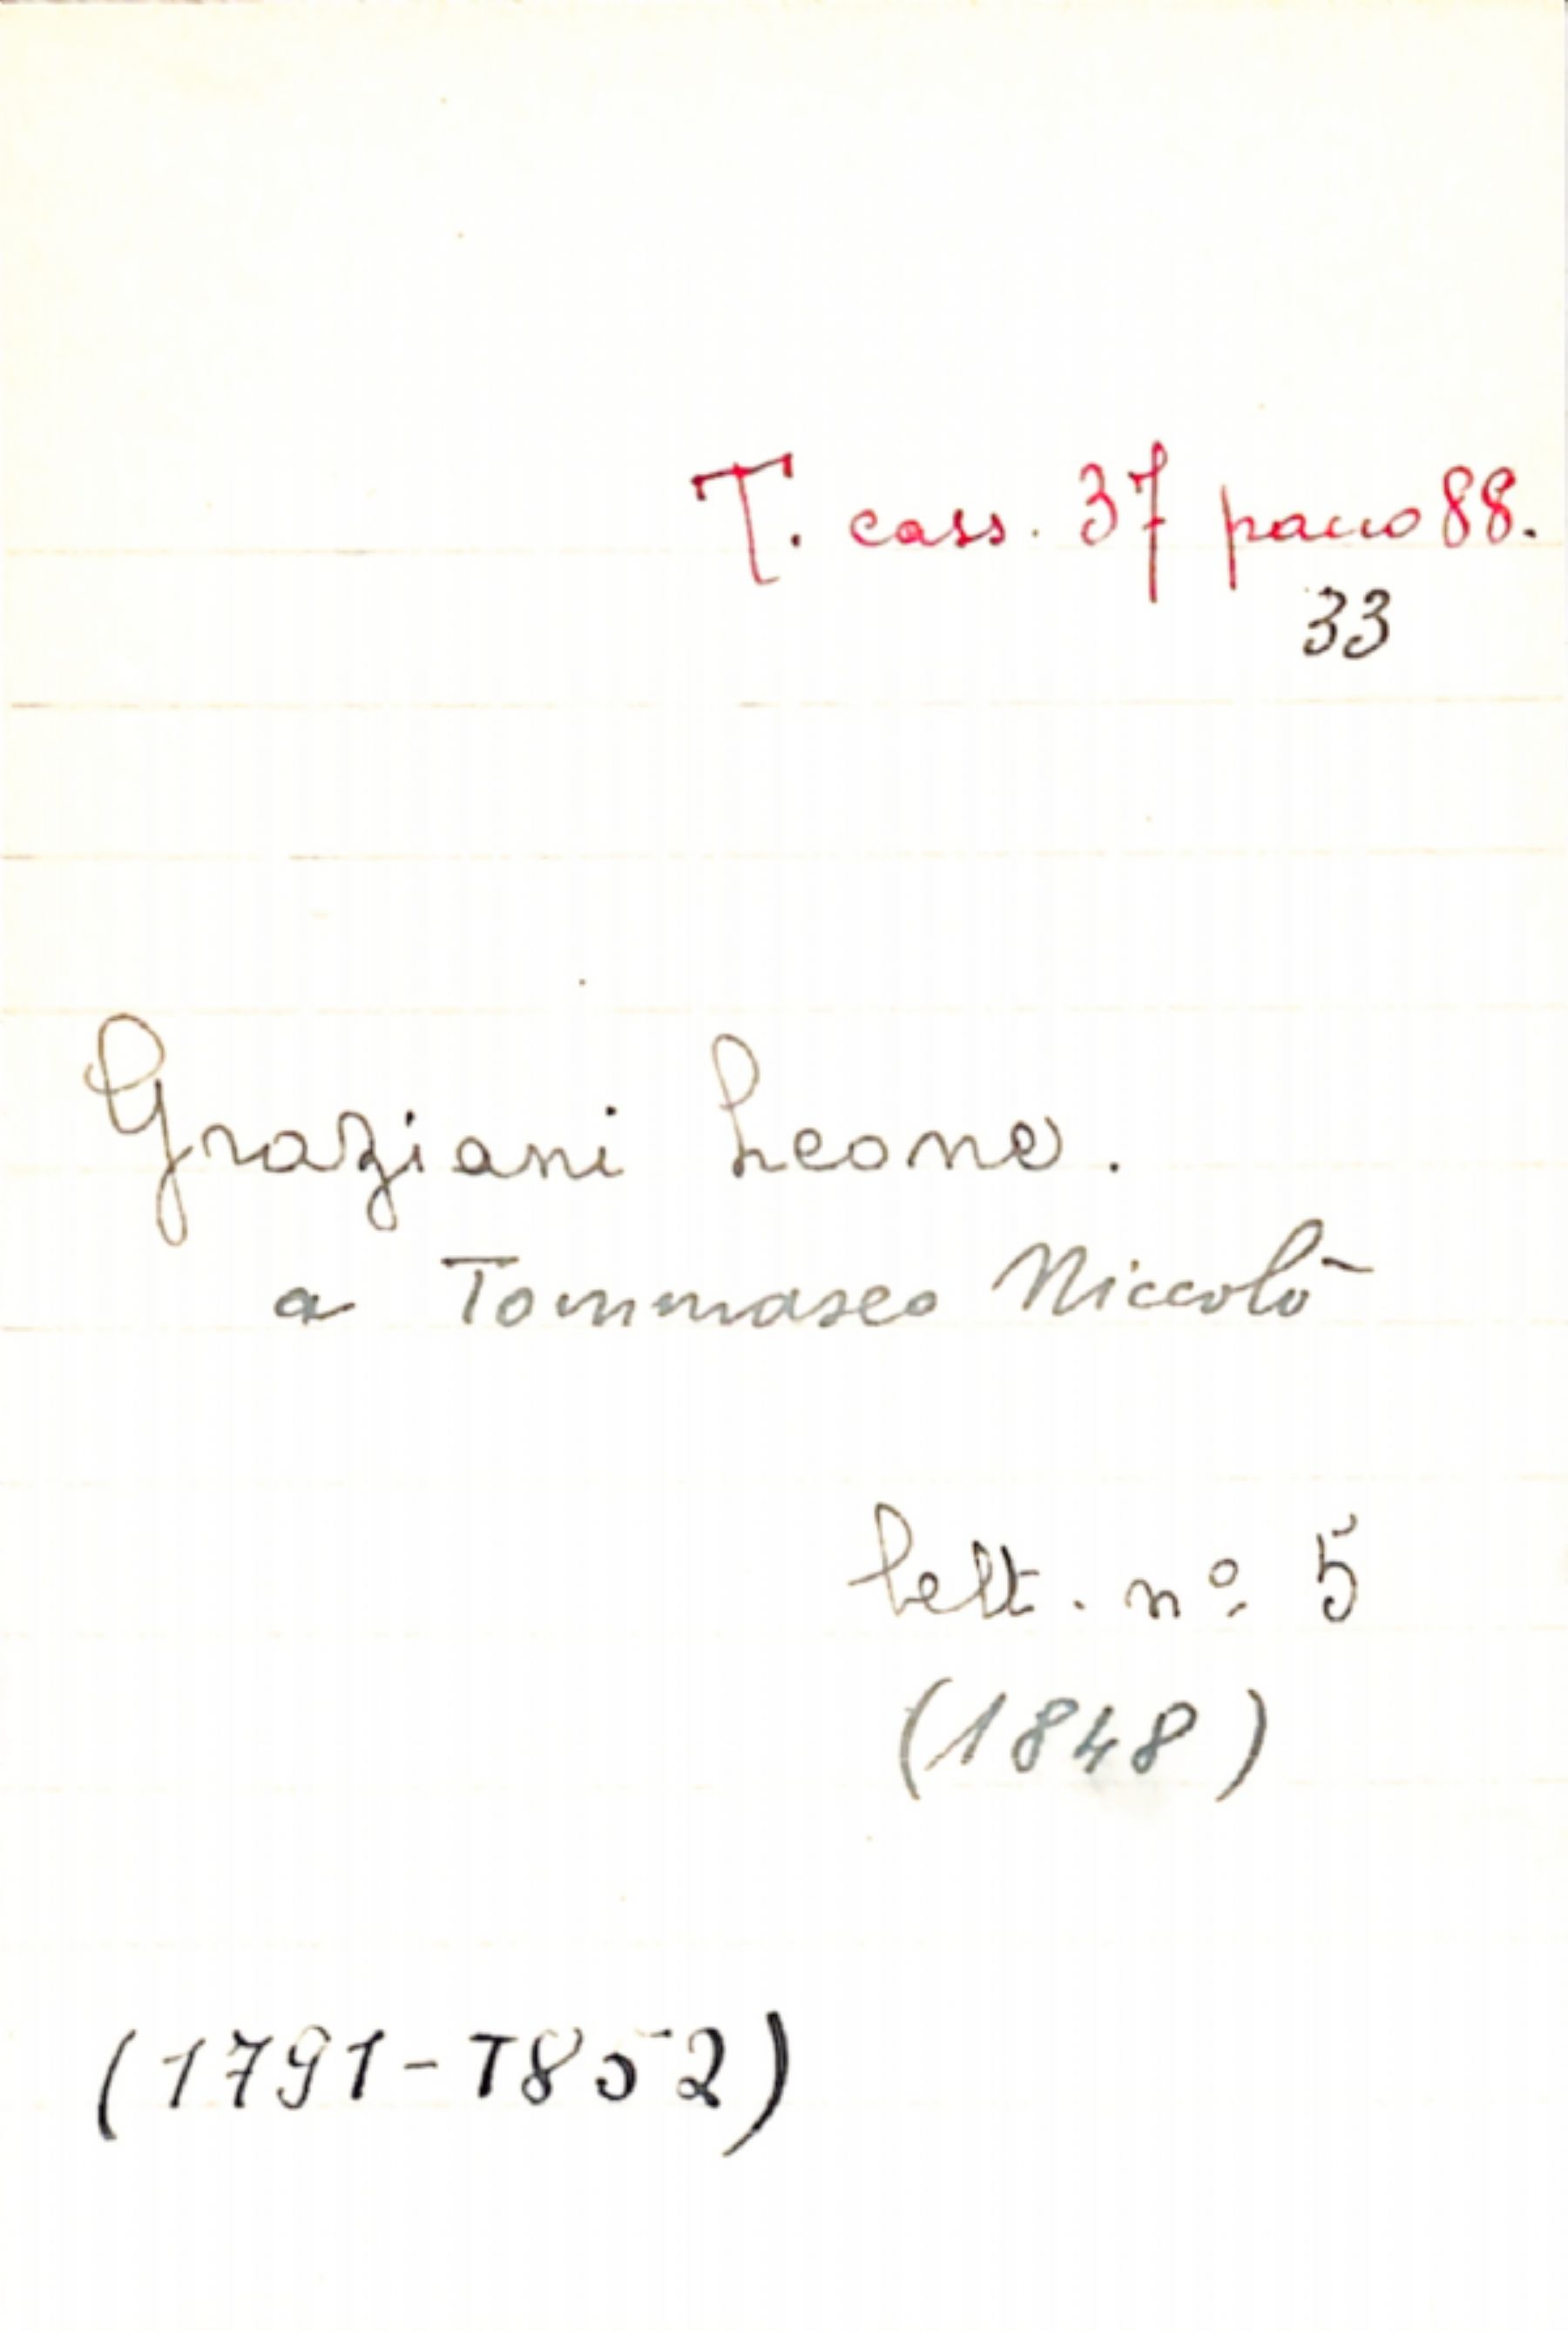 T. cass. 37 pacco 88.
33
Graziani Leone.
a Tommaseo Niccolò
lett. nº 5
(1848)
(1791-1852)